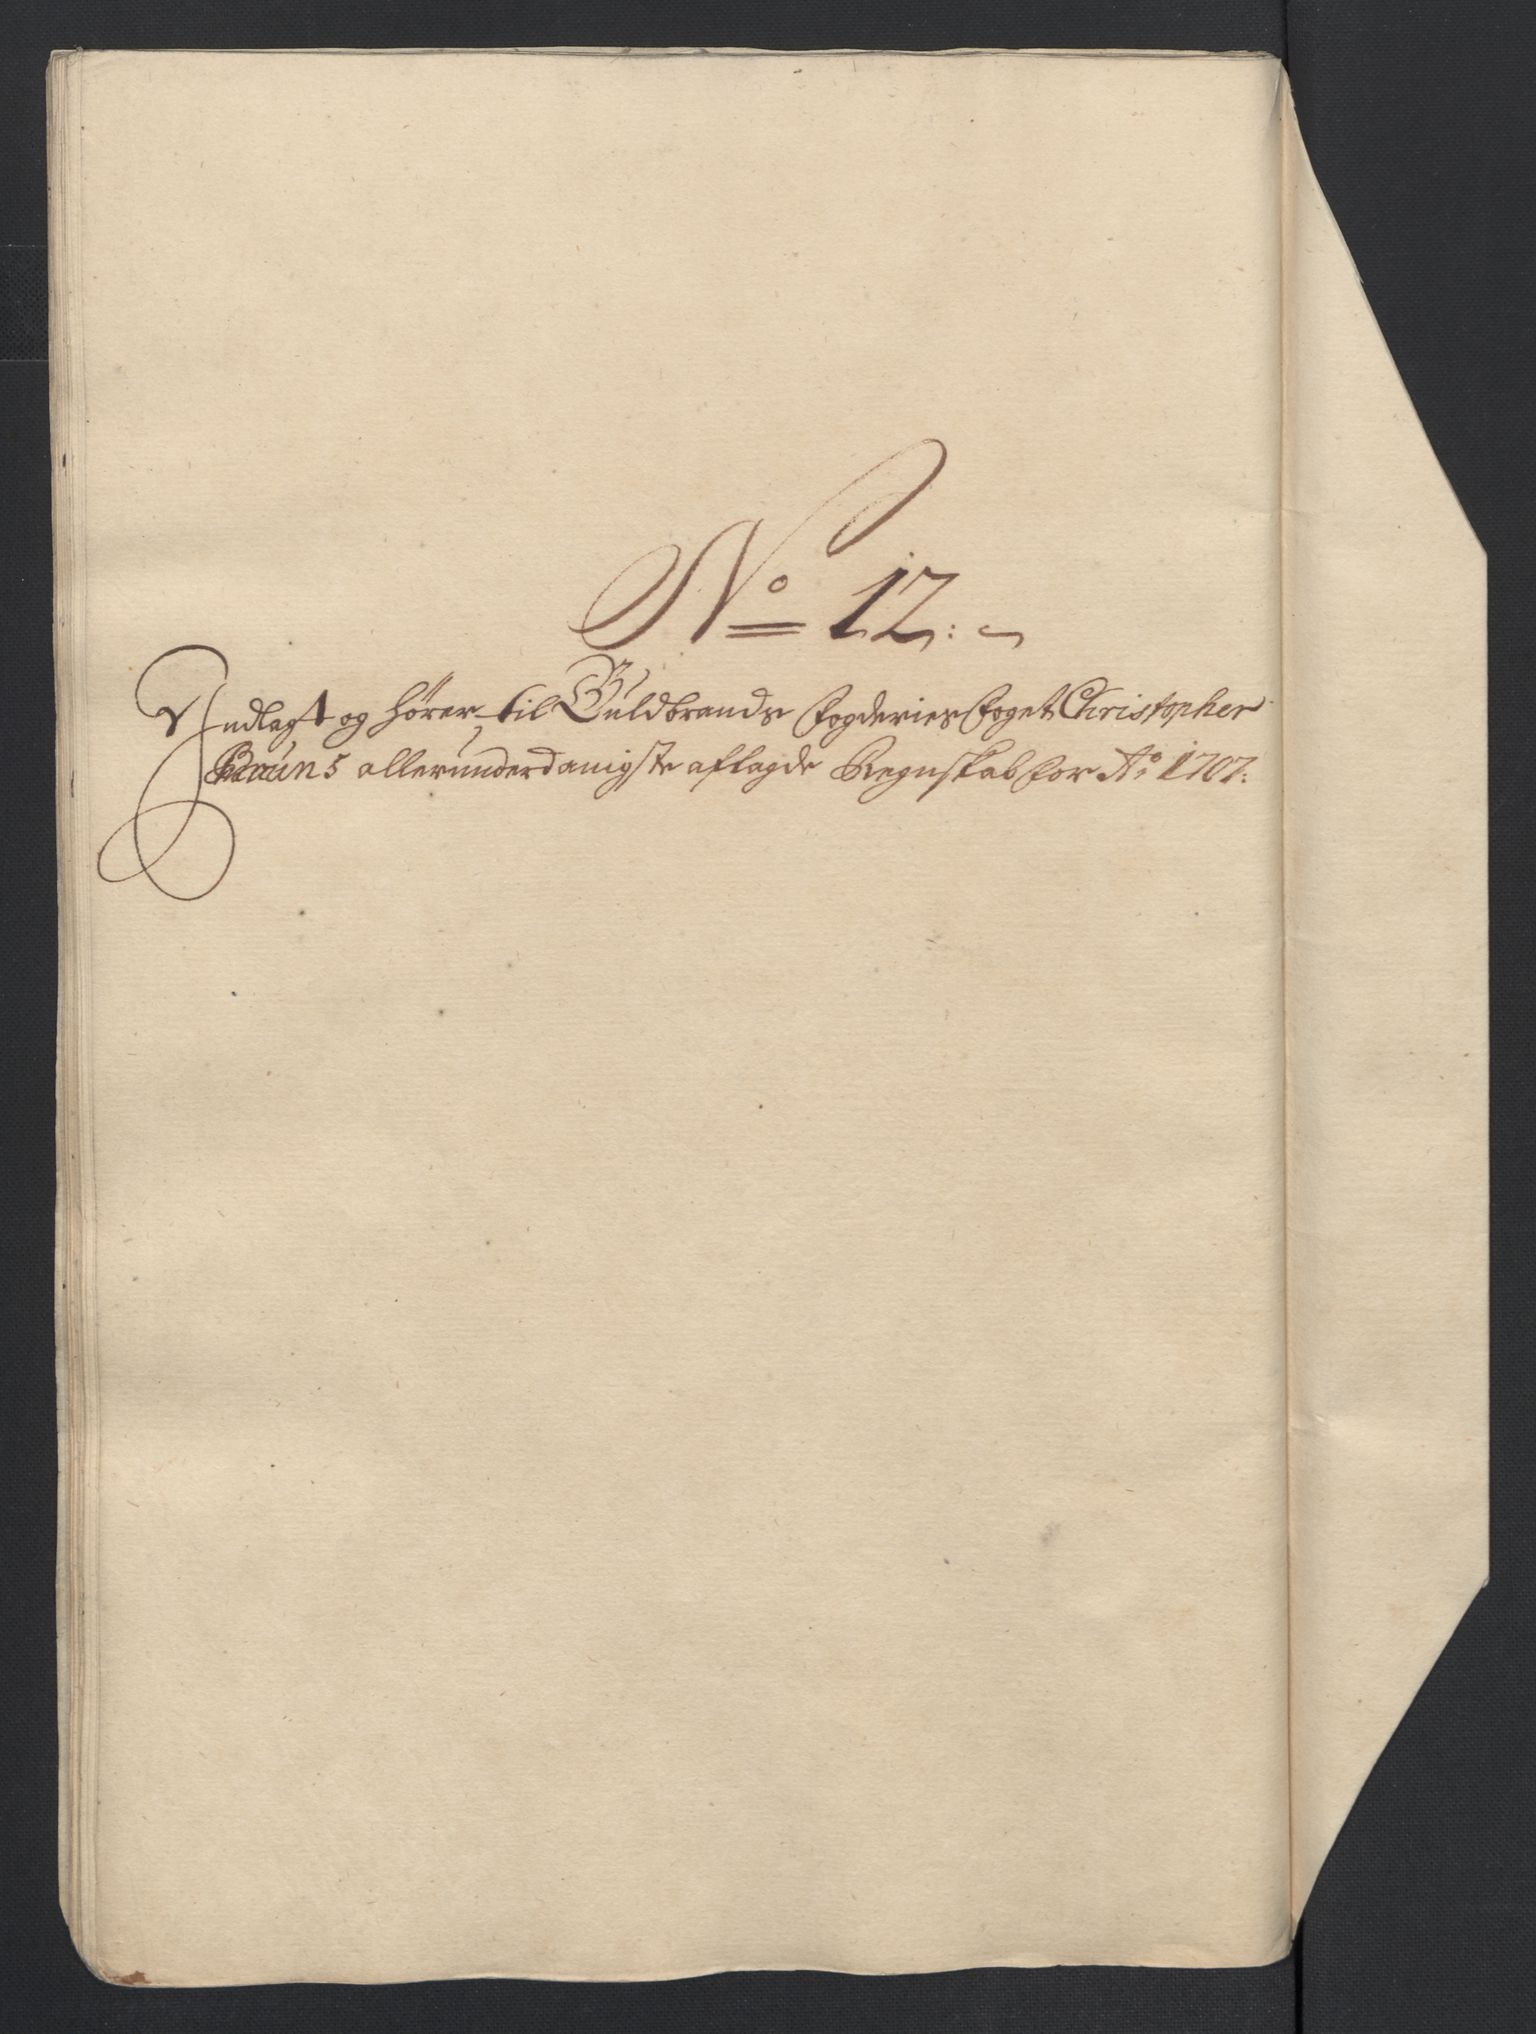 No 12:
Indlagt og hører til Guldbrands Fogderies Foget Christopher
Brauns allerunderdanigste aflagde Regnskab for Ao 1707: